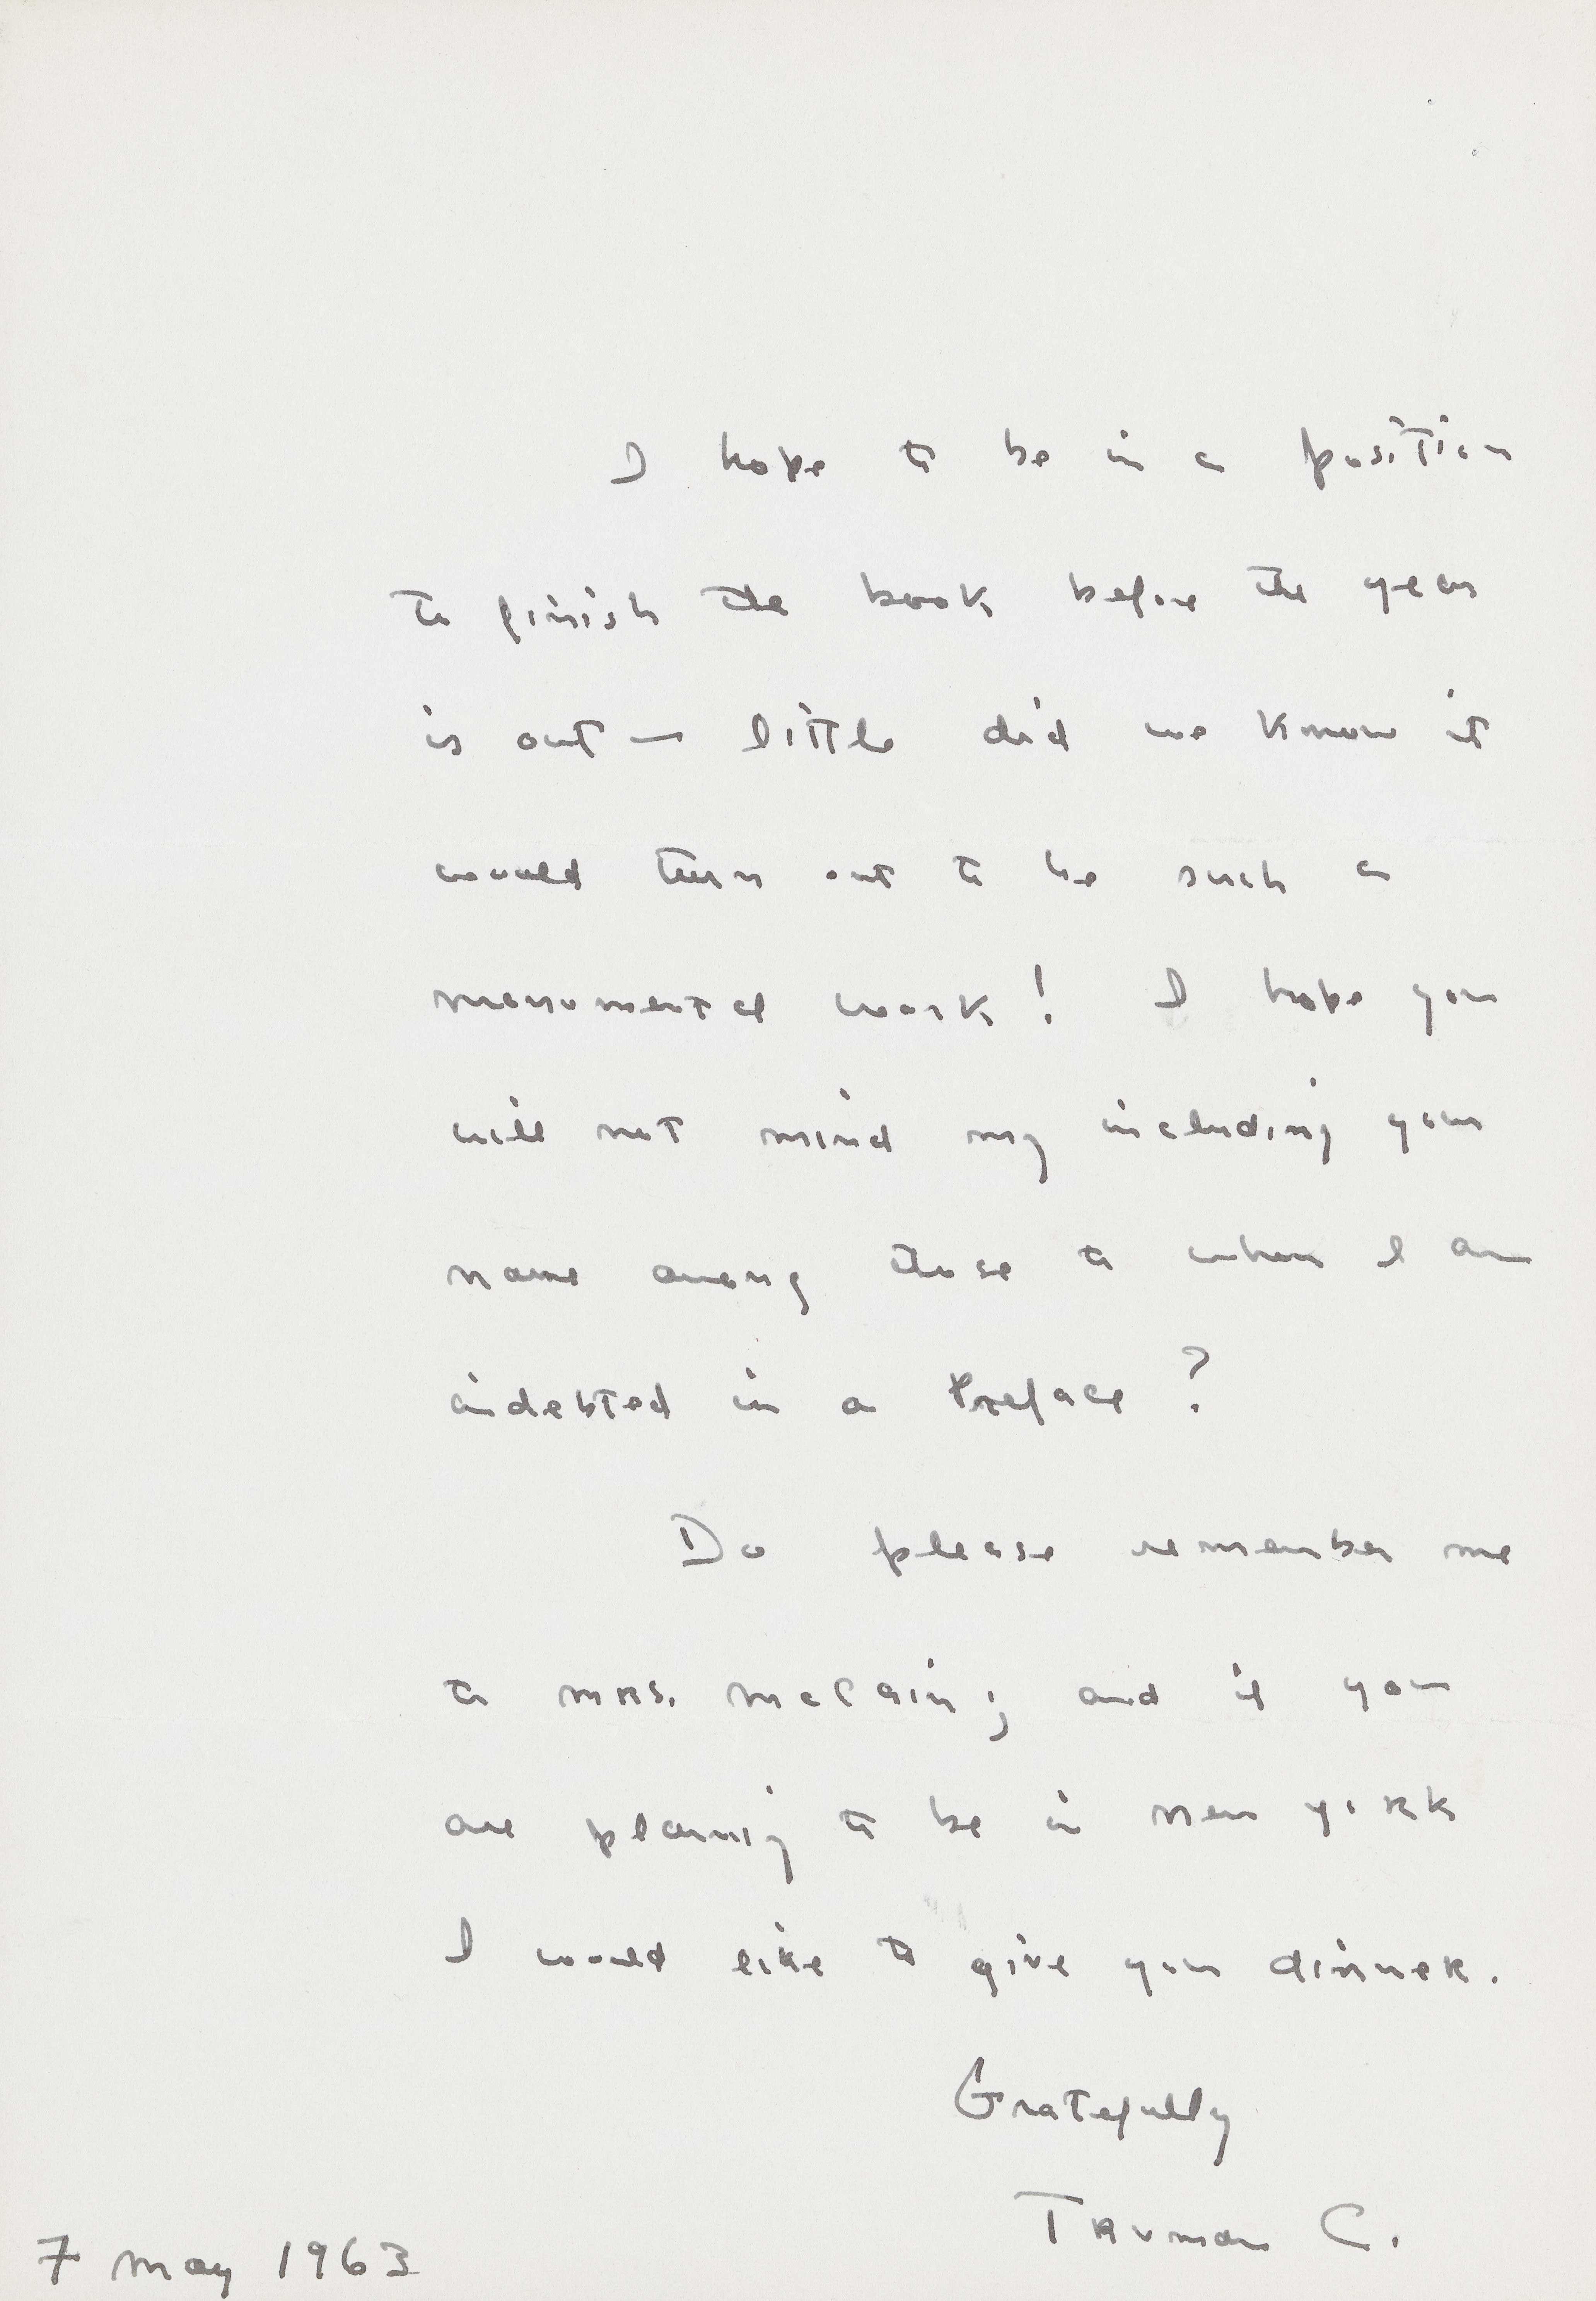 I hope to be in a position
to finish the book before the year
is out — little did we know it
would turn out to be such a
monumental work! I hope you
will not mind my including your
name among those to whom I am
indebted in a Preface?
Do please remember me
to Mrs. McCain; and if you
are planning to be in New York
I would like to give you dinner.
Gratefully
Truman C.
7 May 1963